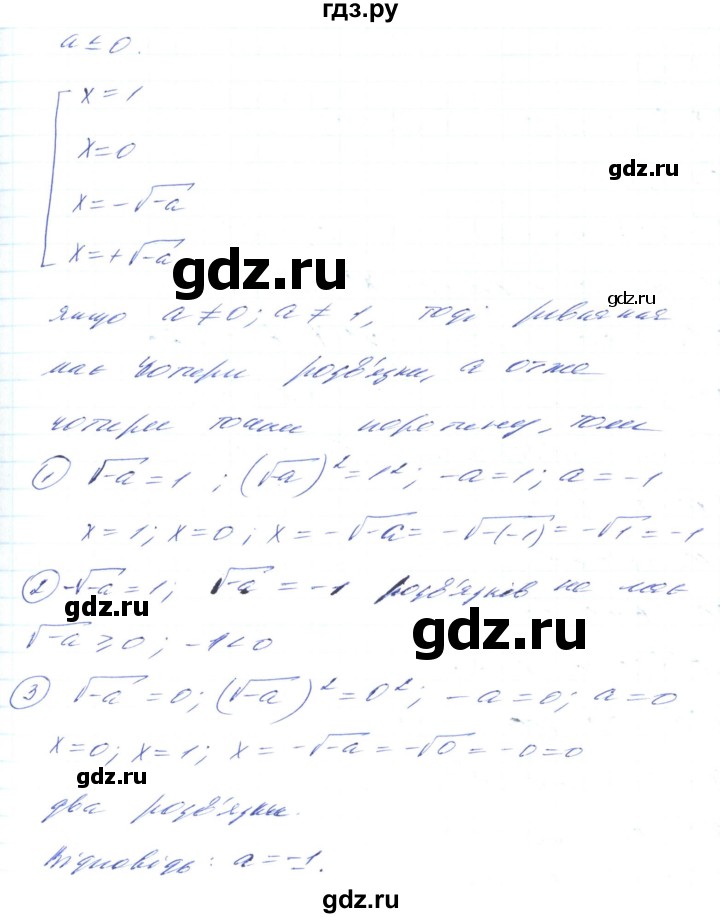 гдз.ру
a ≤ 0.
x = 1
x = 0
gdz.ru
x = -√-a
x = +√-a
gdz.ru
gdz.ru
якщо a ≠ 0; a ≠ 1, тоді рівняння
має чотири розв'язки, а отже
чотири точки перетину, тому
① √-a = 1 ; (√-a)² = 1²; -a = 1; a = -1
x = 1; x = 0; x = -√-a = -√-(-1) = -√1 = -1
② -√-a = 1; √-a = -1 розв'язків не має
gdz.ru
gdz.ru
√-a ≥ 0; -1 < 0
③ √-a = 0; (√-a)² = 0²; -a = 0; a = 0
x = 0; x = 1; x = -√-a = -√0 = -0 = 0
gdz.ru
gdz.ru
два розв'язки.
Відповідь: a = -1.
gdz.ru